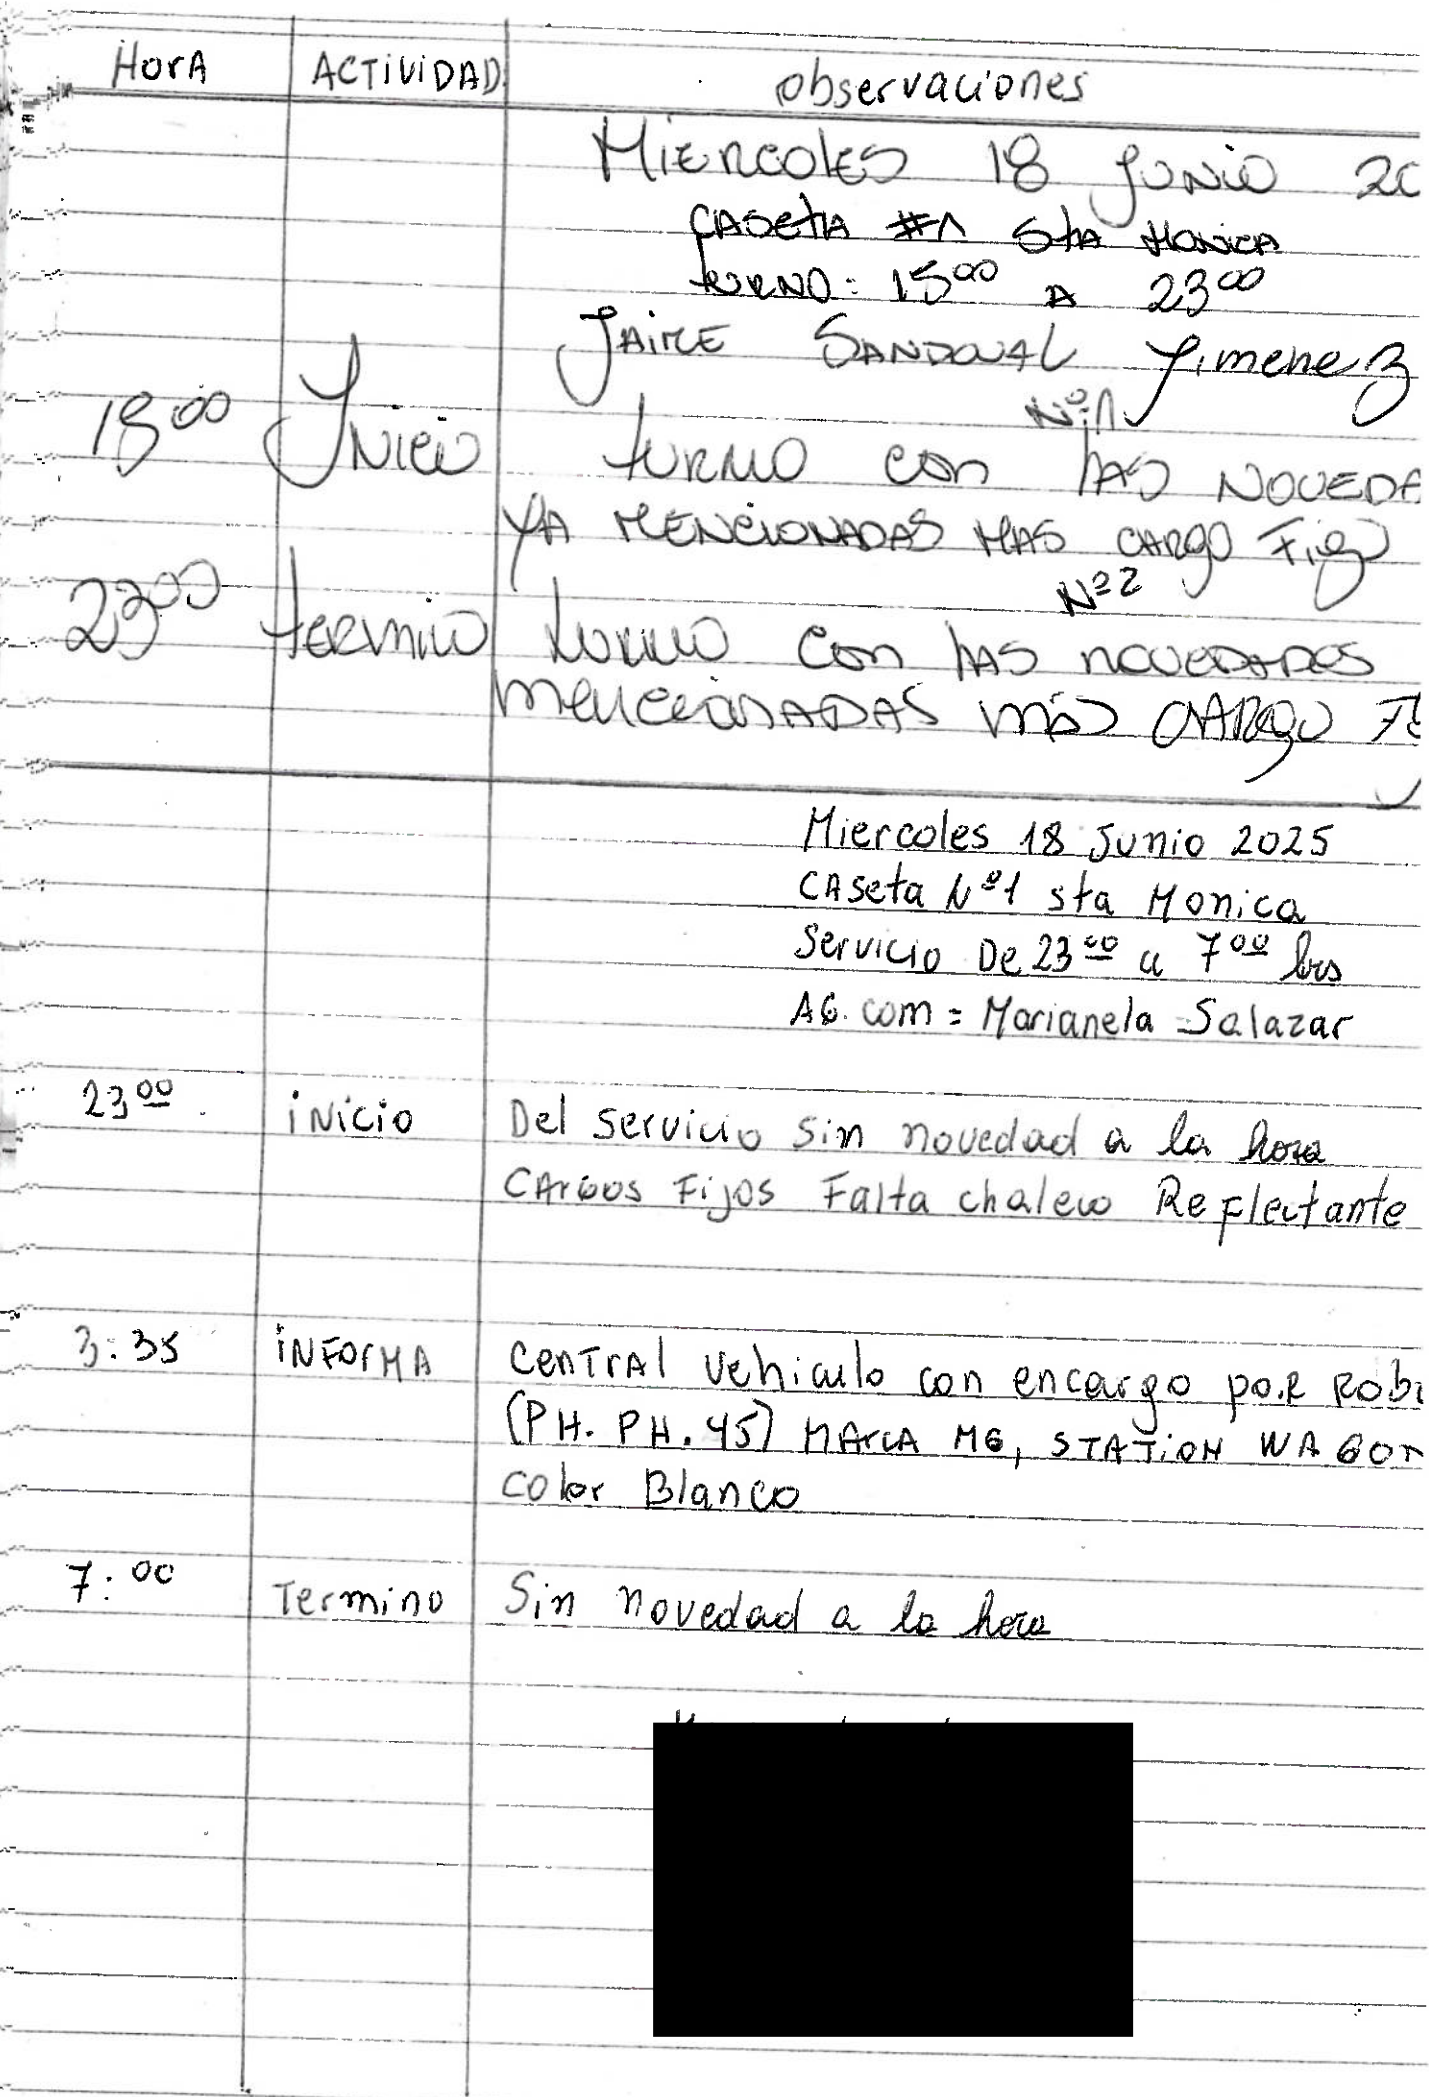 HorA ACTIVIDAD observaciones
MIERCOLES 18 JUNIO 20
CASETA #1 StA MONICA
turno: 15⁰⁰ A 23⁰⁰
JAIME SANDOVAL Jimenez
Nº:1
15⁰⁰ INICIO turno con LAS NOVEDA
YA MENCIONADAS MAS CARGO Fijo
Nº2
23⁰⁰ termino turno con LAS NOVEDADES
mencionADAS más CARGO
Miercoles 18 Junio 2025
CAseta Nº1 sta Monica
Servicio De 23⁰⁰ a 7⁰⁰ hrs
AG. com = Marianela Salazar
23⁰⁰ iNicio Del servicio Sin novedad a la hora
CArgos Fijos Falta chaleco Reflectante
3:35 iNForMA CenTrAl vehiculo con encargo por Rob
(PH. PH. 45) MArcA MG, STATiON WAGON
color Blanco
7:00 Termino Sin novedad a la hora